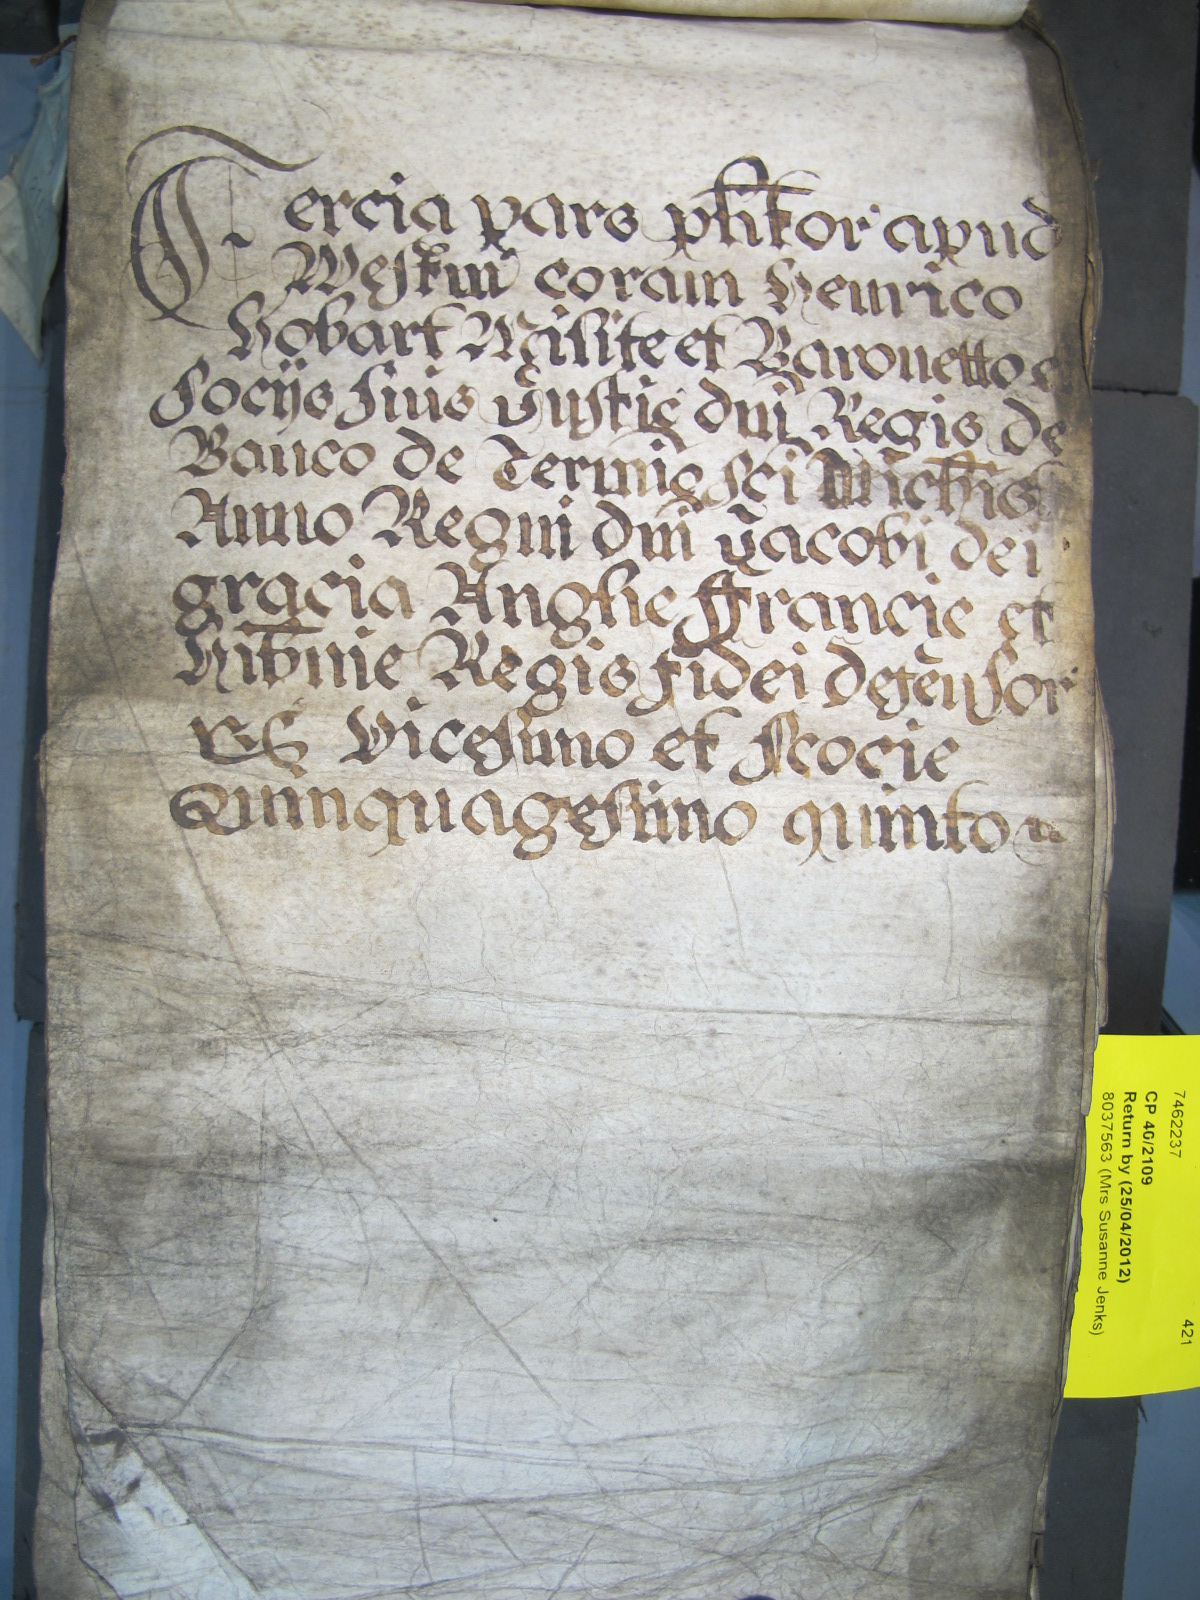 Tercia pars pl̄itor apud
Westm̄ coram Henrico
Hobart Milite et Baronetto et
Socijs suis Justic̄ dn̄i Regis de
Banco de Termiō Sc̄i Mich̄is
Anno Regni dn̄i Jacobi dei
gracia Anglie Francie et
Hib̄nie Regis fidei defensor
&c̄ Vicesimo et Scocie
Quinquagesimo quinto
7462237
421
CP 40/2109
Return by (25/04/2012)
8037563 (Mrs Susanne Jenks)